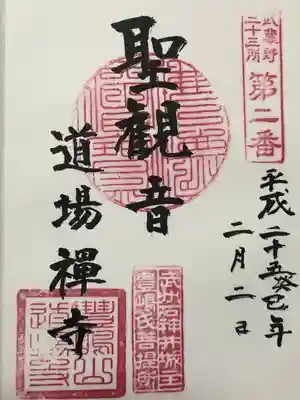 武蔵野
三十三所
第二番
聖観音
道場禪寺
平成二十五癸巳年
二月二日
武州石神井城主
豊嶋氏菩提所